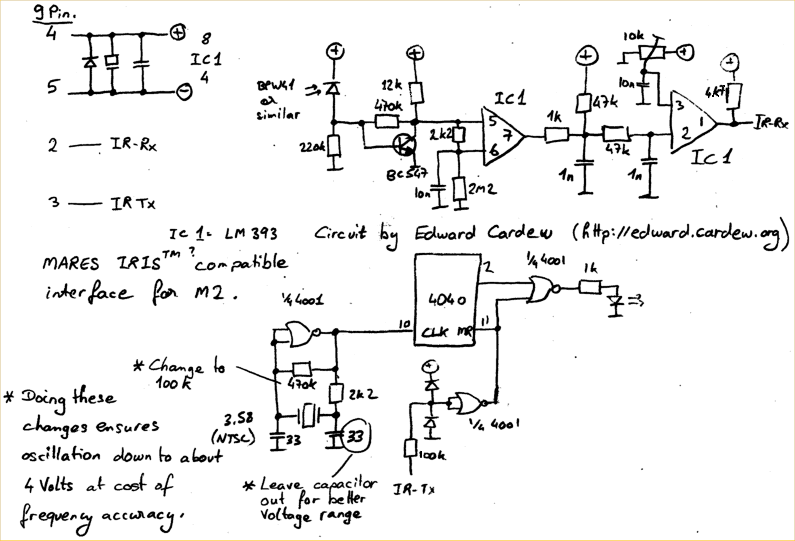 9 Pin.
4
+
8
IC1
4
5
−
2 — IR-Rx
3 — IR Tx
BPW41
or
similar
+
+
12k
470k
220k
BC547
IC1
5
7
6
2k2
10n
2M2
1k
+
47k
1n
47k
1n
10k
+
10n
3
1
2
IC1
+
4k7
IR-Rx
IC 1 = LM 393
Circuit by Edward Cardew (http://edward.cardew.org)
MARES IRIS™? compatible
interface for M2.
1/4 4001
470k
2k2
3.58
(NTSC)
33
33
* Change to
100k
* Doing these
changes ensures
oscillation down to about
4 Volts at cost of
frequency accuracy.
* Leave capacitor
out for better
Voltage range
10
4040
CLK MR
2
11
1/4 4001
1k
+
1/4 4001
100k
IR-Tx